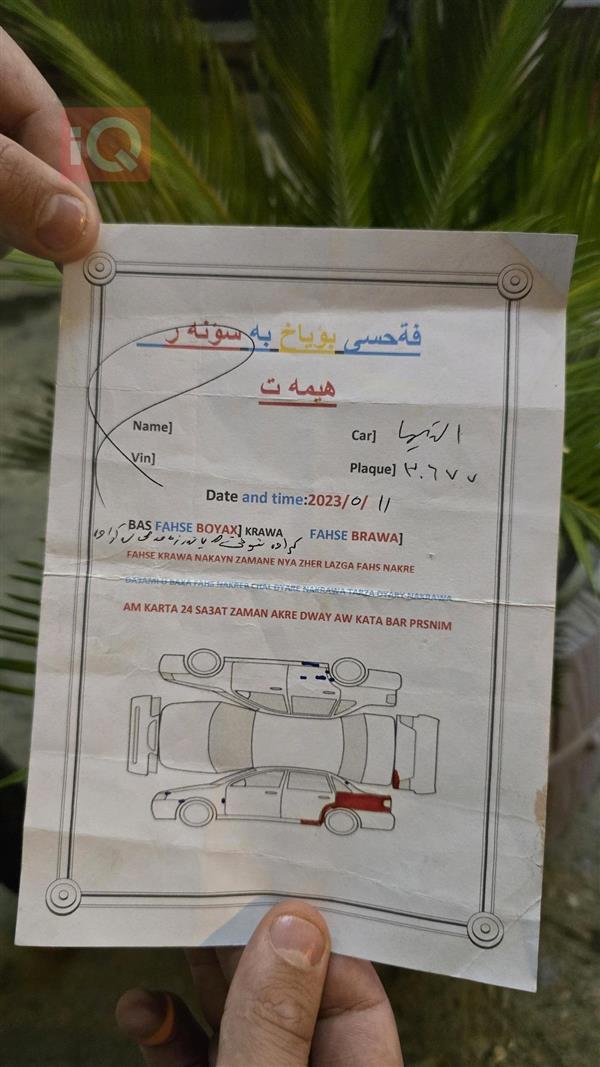 iQ
فةحسى بؤياخ به سؤنه ر
هيمه ت
Name]
Car] التيما
Vin]
Plaque] ٣٠٦٧٧
Date and time:2023/5/ 11
BAS FAHSE BOYAX] KRAWA FAHSE BRAWA]
FAHSE KRAWA NAKAYN ZAMANE NYA ZHER LAZGA FAHS NAKRE
DA3AMI U BAXA FAHS NAKRER CHAL DYARE NAKRAWA TABZA DYARY NAKRAWA
AM KARTA 24 SA3AT ZAMAN AKRE DWAY AW KATA BAR PRSNIM